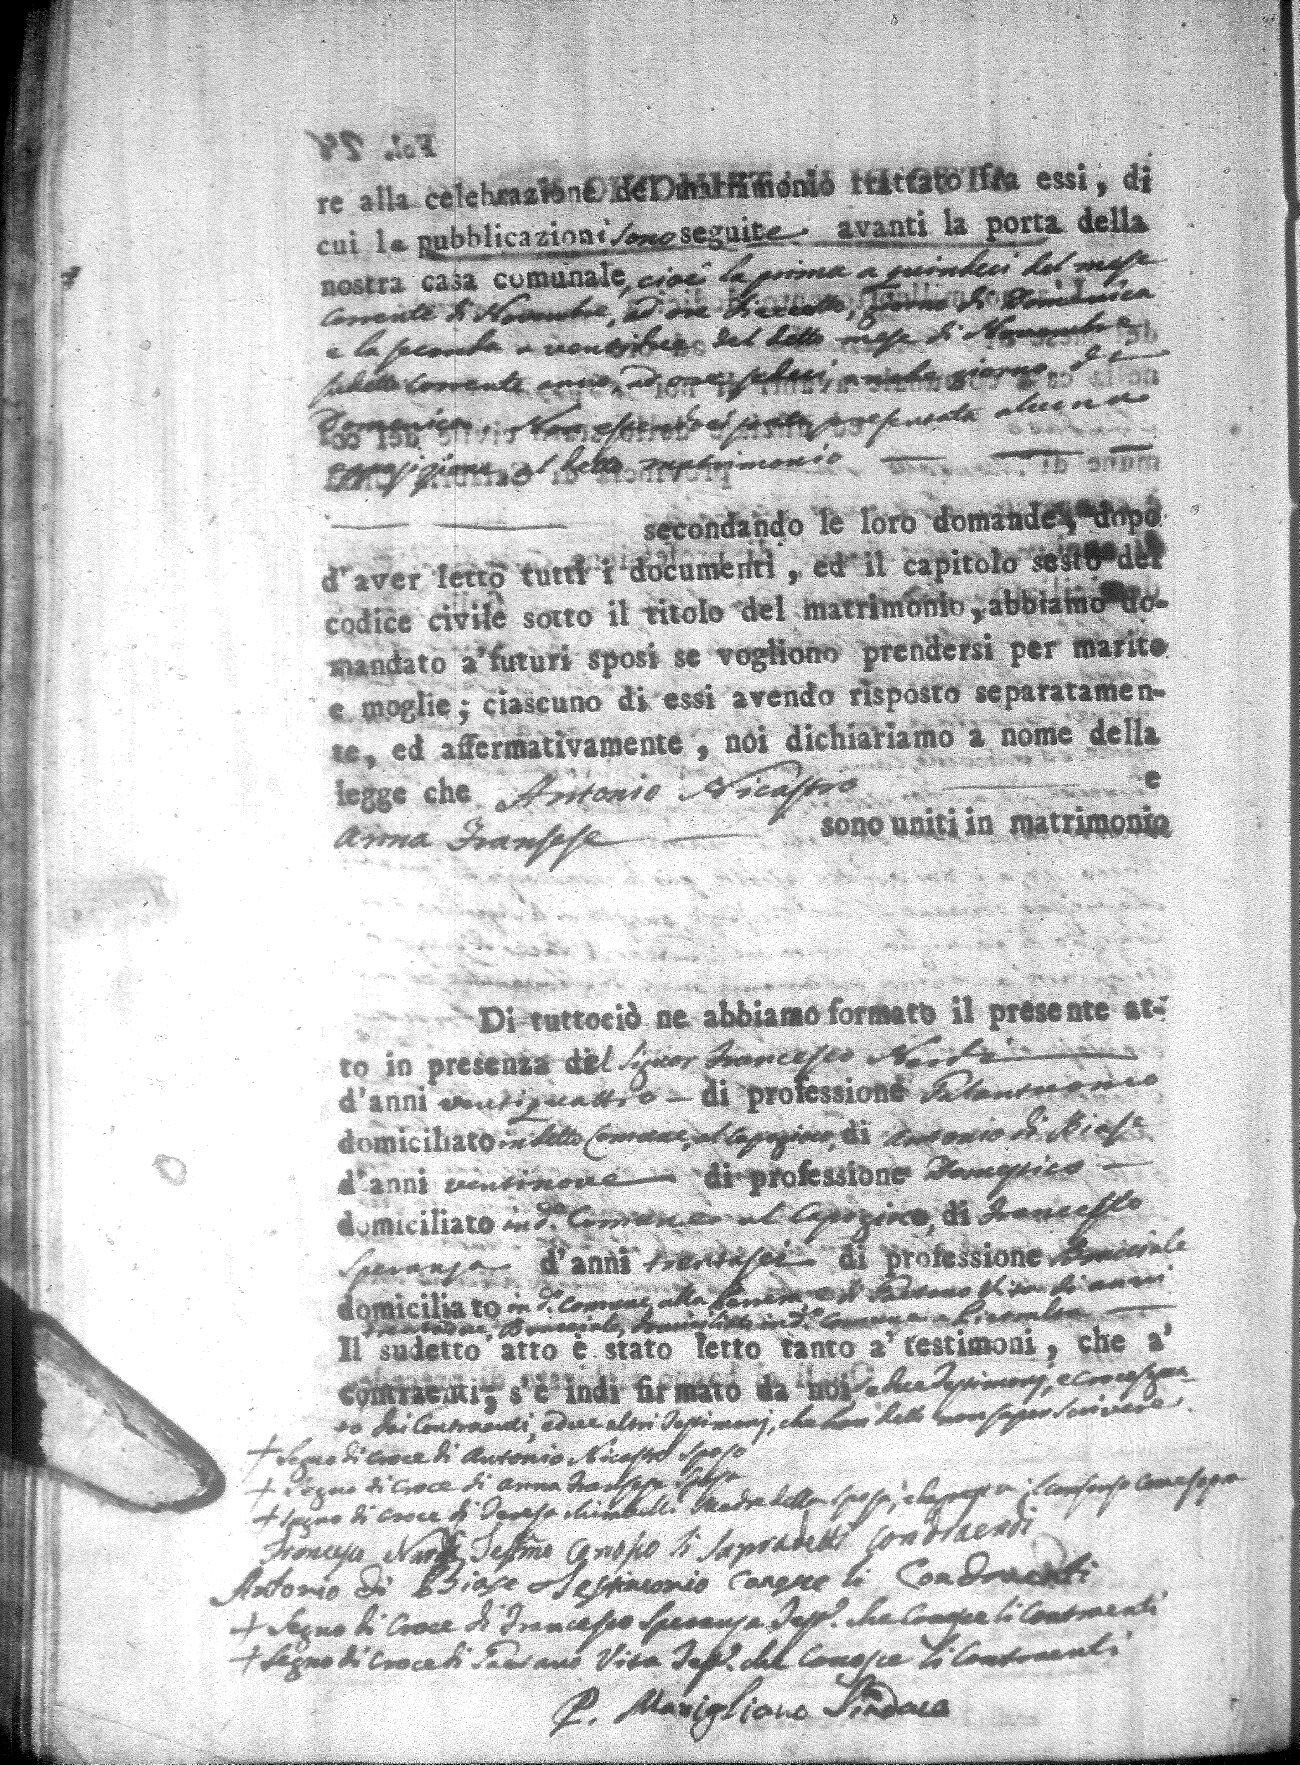 Fol. 28
re alla celebrazione del matrimonio trattato fra essi, di
cui le pubblicazioni sono seguite avanti la porta della
nostra casa comunale, cioè la prima a quindeci del mese
corrente di Novembre, ad ore diecotto, giorno di Domenica
e la seconda a ventidue del detto mese di Novembre
sudetto corrente anno, ad ore sedeci, anche giorno di
Domenica. Non essendoci stata presentata alcuna
opposizione al detto matrimonio
secondando le loro domande, dopo
d'aver letto tutti i documenti, ed il capitolo sesto del
codice civile sotto il titolo del matrimonio, abbiamo do-
mandato a' futuri sposi se vogliono prendersi per marito
e moglie; ciascuno di essi avendo risposto separatamen-
te, ed affermativamente, noi dichiariamo a nome della
legge che Antonio Nicastro e
Anna Fransese sono uniti in matrimonio
Di tuttociò ne abbiamo formato il presente at-
to in presenza del Signor Francesco Nardi
d'anni ventiquattro di professione Galantuomo
domiciliato in detto Comune, al Capozino, di Antonio di Biase
d'anni ventinove di professione Domestico
domiciliato in d.º Comune al Capozino, di Francesco
Speranza d'anni trentasei di professione Bracciale
domiciliato in d.º Comune, alla e di Gaetano Vita di anni
Bracciale, domiciliato in d.º Comune a
Il sudetto atto è stato letto tanto a' testimoni, che a'
contraenti; s'è indi firmato da noi e due Testimonj, e crocesegna-
to dai Contraenti, e due altri Testimonj, che han detto non saper scrivere.
+ Segno di Croce di Antonio Nicastro sposo
+ Segno di Croce di Anna Fransese sposa
+ Segno di Croce di Teresa Madre della sposa, che presta il consenso come sopra
Francesco Nardi Testimo conosco li sopradetti Condraendi
Antonio di Biase Testimonio conosce li Condraenti
+ Segno di Croce di Francesco Speranza Test.º che conosce li Contraenti
+ Segno di Croce di Gaetano Vita Test.º che conosce li Contraenti
P. Marigliano Sindaco